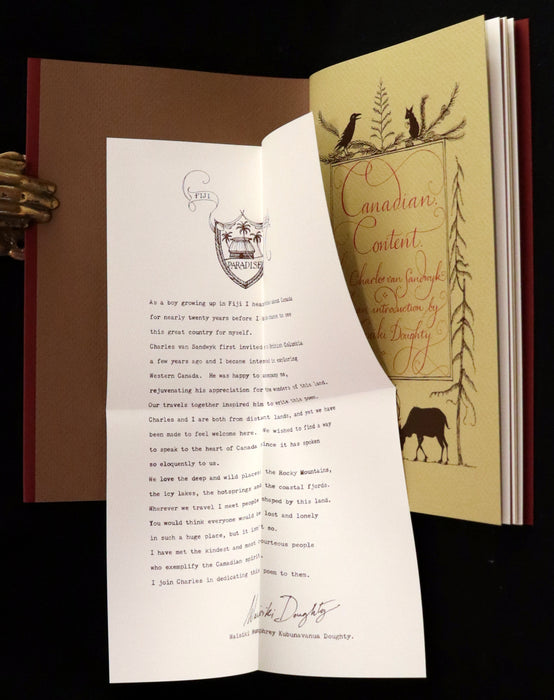 FIJI
PARADISE
As a boy growing up in Fiji I heard about Canada
for nearly twenty years before I came to see
this great country for myself.
Charles van Sandwyk first invited to British Columbia
a few years ago and I became interested in exploring
Western Canada. He was happy to accompany us,
rejuvenating his appreciation for the wonders of this land.
Our travels together inspired him to write this poem.
Charles and I are both from distant lands, and yet we have
been made to feel welcome here. We wished to find a way
to speak to the heart of Canada since it has spoken
so eloquently to us.
We love the deep and wild places: the Rocky Mountains,
the icy lakes, the hotsprings and the coastal fjords.
Wherever we travel I meet people shaped by this land.
You would think everyone would be lost and lonely
in such a huge place, but it isn't so.
I have met the kindest and most courteous people
who exemplify the Canadian spirit.
I join Charles in dedicating this poem to them.
Waisiki Doughty
Waisiki Humphrey Kubunavanua Doughty.
Canadian
Content.
Charles van Sandwyk
an introduction by
Doughty